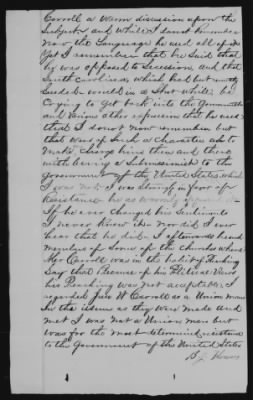 Carroll a warm discussion upon the
Subject and while I dont remember
now the Language he used all of it
yet I remember that he said that
he was opposed to Secession and that
South Carolina which had but recently
Seeded would in a Short while be
trying to get back into the Government
and various other expression that he used
that I do not now remember but
that was of such a Character as to
make charge him then and there
with being a Submissionist to the
government of the United States which
I was not I was Strongly in favor of
Resistance he as warmly opposed it
If he ever changed his Sentiments
I never knew it nor did I ever
hear that he did I afterwards heard
members of some of the churches where
Mr Carroll was in the habit of Preaching
Say that Because of his Political Views
his Preaching was not acceptable. I
regarded Jno W Carroll as a Union man
in the issues as they were made and
met I was not a Union man but
was for the most determined resistance
to the Government of the United States
B J